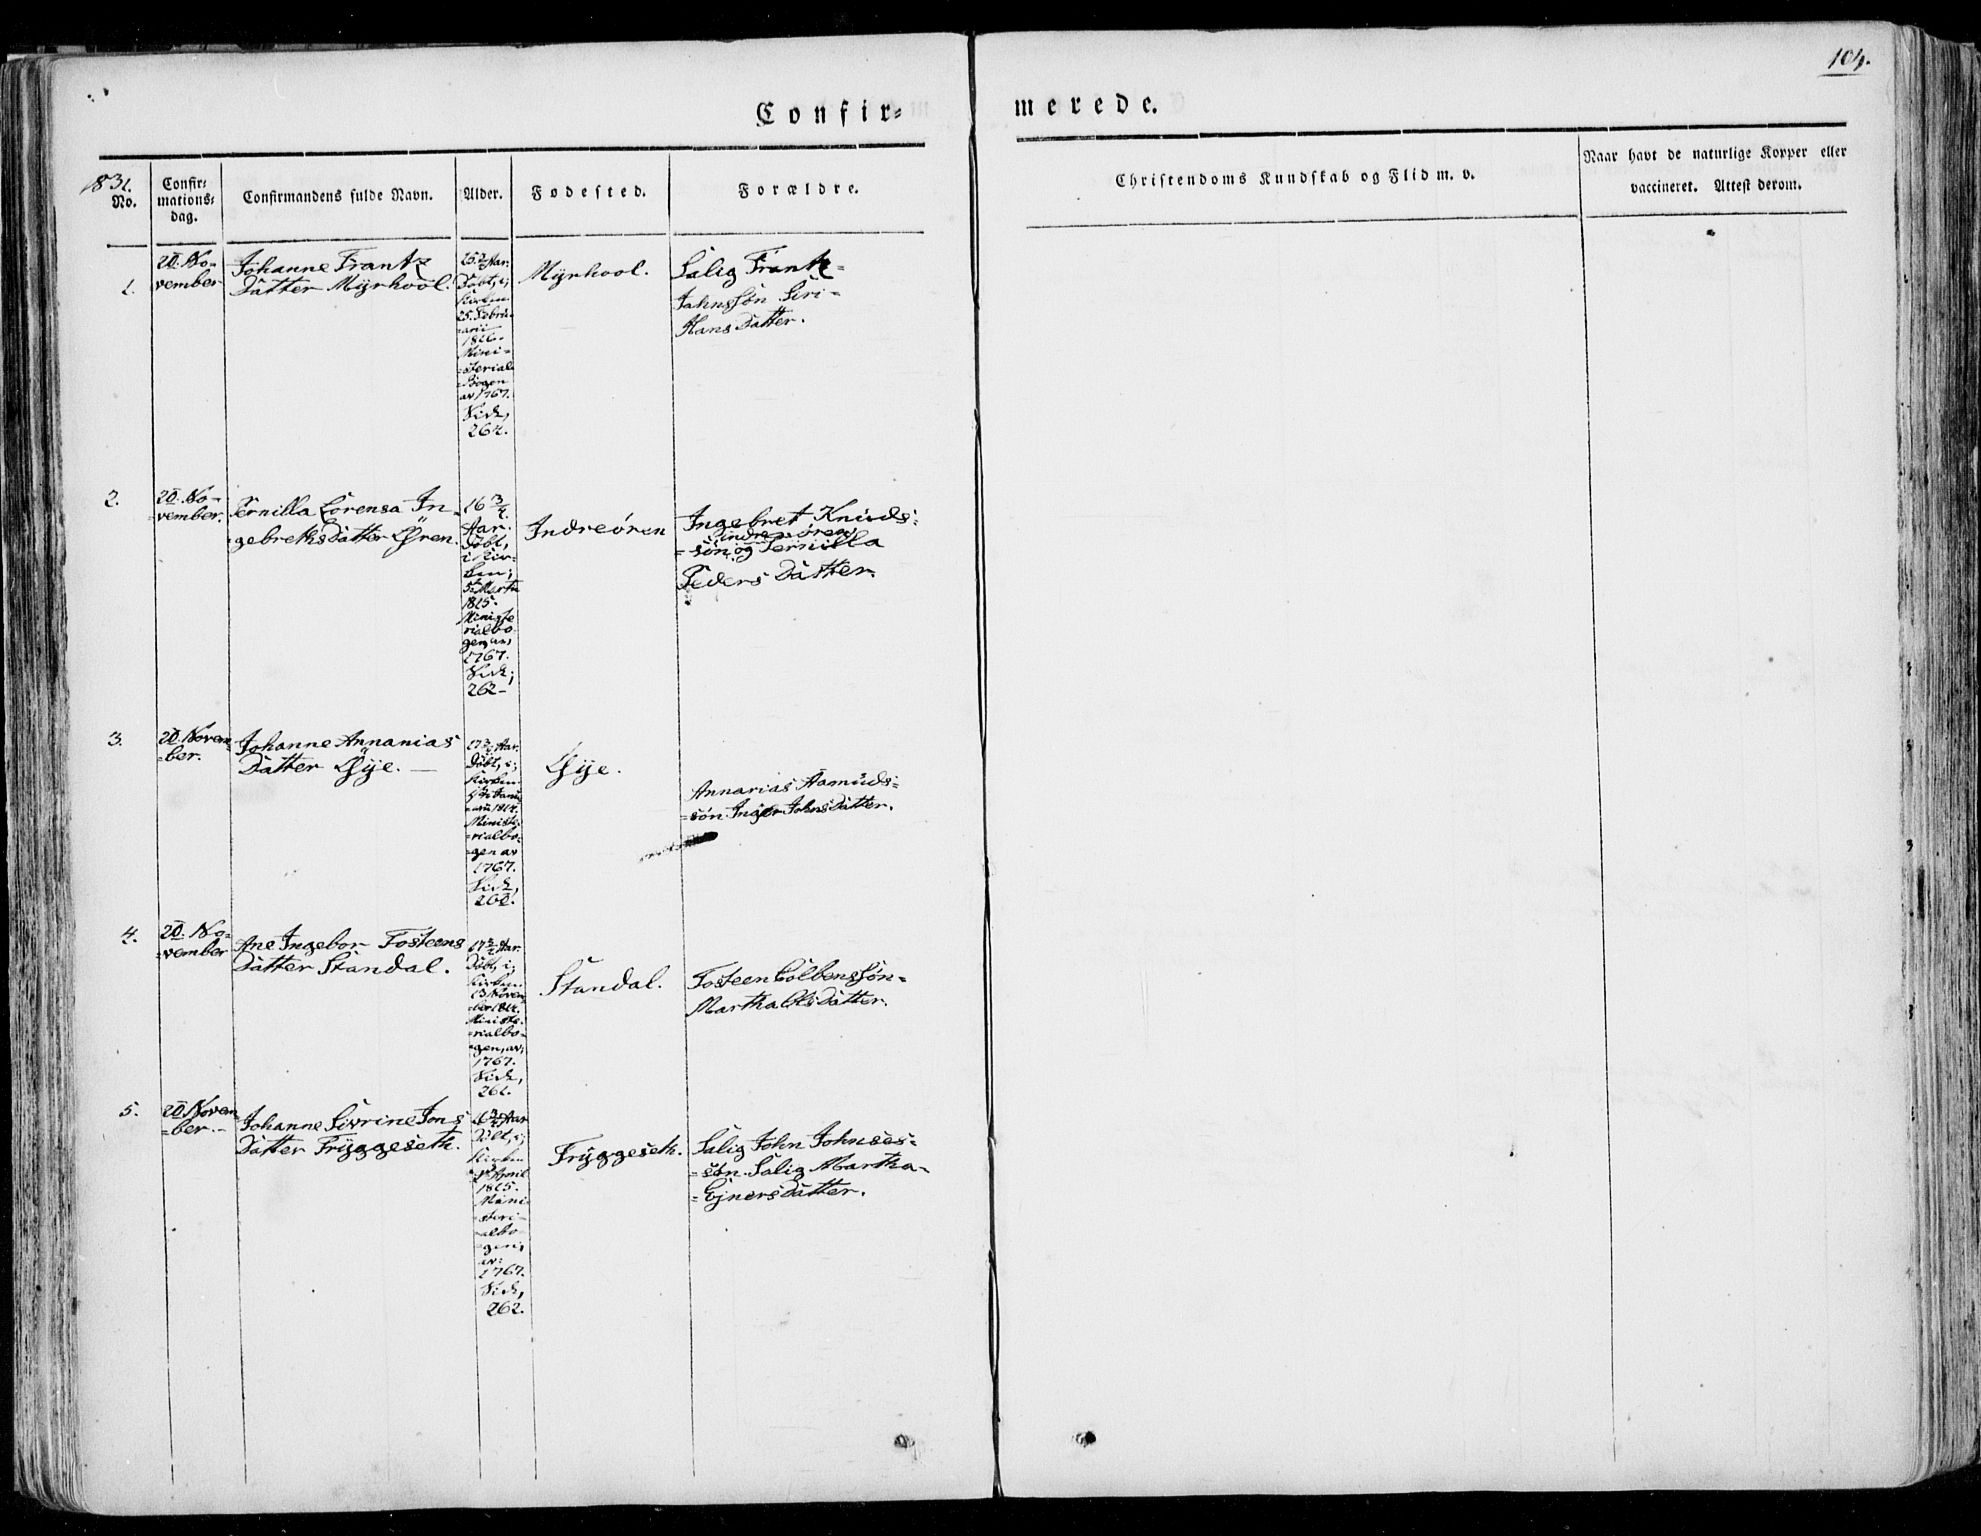 104.
Confir=
merede.
1831.
No.
Confir=
mations=
dag.
Confirmandens fulde Navn.
Alder.
Fødested.
Forældre.
Christendoms Kundskab og Flid m. v.
Naar havt de naturlige Kopper eller
vaccineret. Attest derom.
1.
20. No=
vember
Johanne Frantz
Datter Myrhool.
Aar.
Døbt, i;
Kirken
25. Febru=
=arii
1816.
Mini=
=sterial
=Bogen
av 1767.
Side,
Myrhool.
Salig Frantz=
Jahnssøn Siri=
Hans Datter.
2.
20. No=
=vember.
Pernilla Lorensa In=
=gebrethsDatter Øren.
16 3/4.
Aar.
Døbt,
i Kir=
ken;
5te Marti
1815.
Ministe
rialbo
gen av,
1767.
Side;
262-
Indreøren
Ingebret Knuds=
indreøren
=søn og Pernilla
Peders Datter.
3.
20. Novem=
=ber.
Johanne Annanias
Datter Øÿe. —
Aar.
Døbt, i;
Kirken
Janu=
=arii 1814.
Ministe=
=rialbo=
=gen av
1767.
Side,
Øÿe.
Annanias Aamuds=
=søn. Inger JohnsDatter.
4.
20. No=
=vember
Ane Ingebor Tosteens
Datter Standal.
Aar.
Døbt, i;
Kirken
13 Novem
ber 1814.
Ministe=
=rialbo=
=gen, av;
1767.
Side,
Standal.
Tosteen Colbenssøn=
Martha OlsDatter.
5.
20 Novem=
=ber.-
Johanne Sivrine Jons
Datter Trÿggeseth.
16 3/4 Aar
Døbt, i;
Kirken
April
1815.
Mini=
=steri=
=albo=
=gen;
av:
1767.
Side,
262.
Trÿggeseth.
Salig John Johnses=
=søn. Salig Martha=
=EjnersDatter.